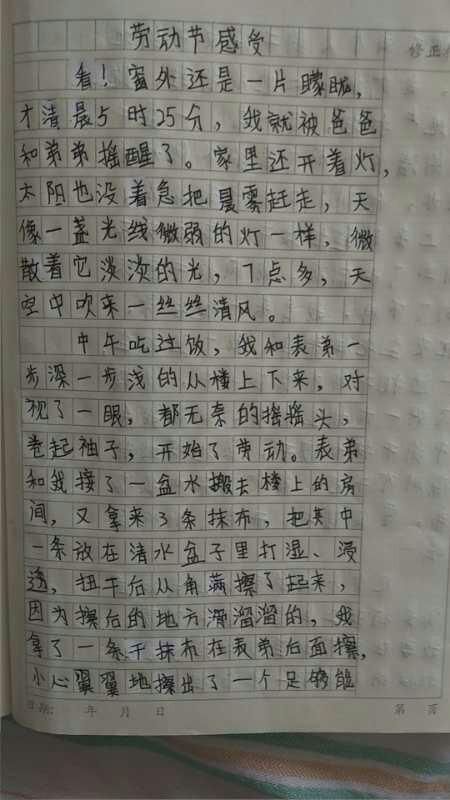 劳动节感受
修正
看！窗外还是一片朦胧，
才清晨5时25分，我就被爸爸
和弟弟摇醒了。家里还开着灯，
太阳也没着急把晨雾赶走，天
像一盏光线微弱的灯一样，微
散着它淡淡的光，7点多，天
空中吹来一丝丝清风。
中午吃过饭，我和表弟一
步深一步浅的从楼上下来，对
视了一眼，都无奈的摇摇头，
卷起袖子，开始了劳动。表弟
和我接了一盆水搬去楼上的房
间，又拿来3条抹布，把其中
一条放在清水盆子里打湿、浸
透，扭干后从角满擦了起来，
因为擦后的地方滑溜溜的，我
拿了一条干抹布在表弟后面擦，
小心翼翼地擦出了一个足够能
日期： 年 月 日 第 页